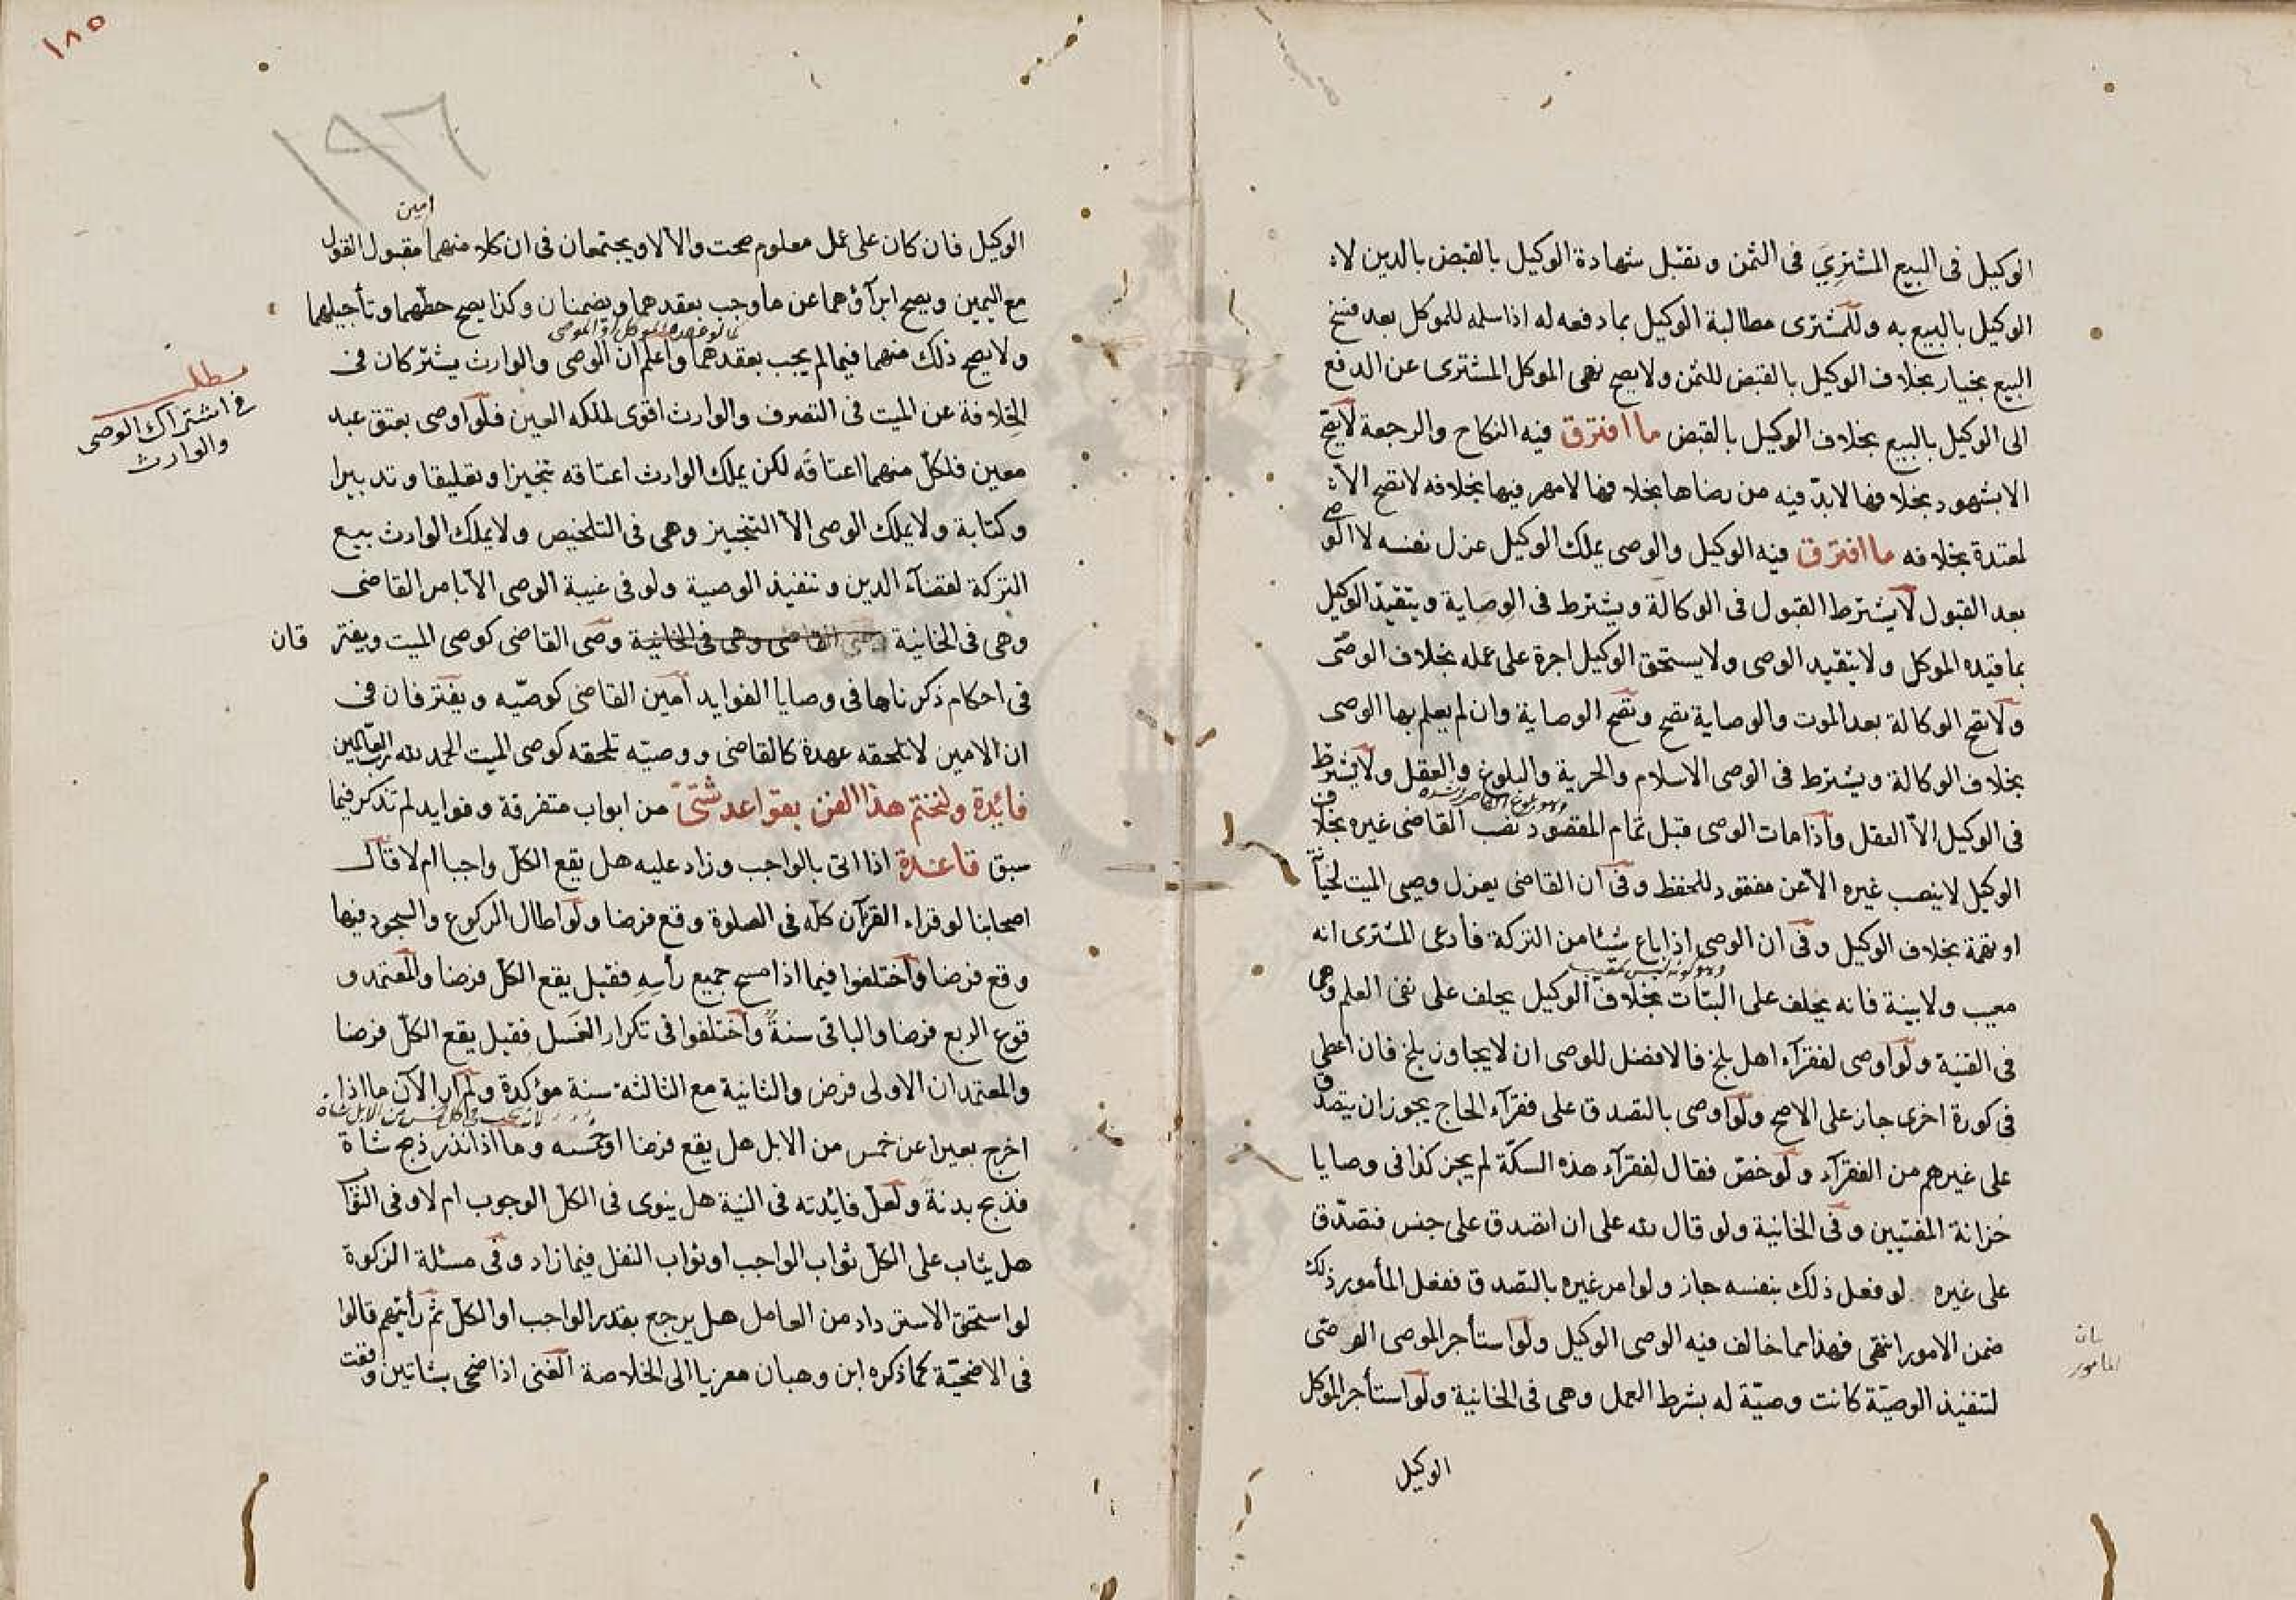 الوكيل فى البيع المشترِيَ فى الثمن وتقبل شهادة الوكيل بالقبض بالدين لا
الوكيل بالبيع به وللمشترى مطالبة الوكيل بما دفعه له اذا سلمه للموكل بعد فسخ
البيع بخيار بخلاف الوكيل بالقبض للثمن ولا يصح نهى الموكل المشترى عن الدفع
الى الوكيل بالبيع بخلاف الوكيل بالقبض ما افترق فيه النكاح والرجعة لا يصح
الا بشهود بخلافها لا بدّ فيه من رضاها بخلافها لا مهر فيها بخلافه لا تصح الا
لمعتدة بخلافه ما افترق فيه الوكيل والوصى يملك الوكيل عزل نفسه لا الوصى
بعد القبول لا يشترط القبول فى الوكالة ويشترط فى الوصاية ويتقيد الوكيل
بما قيده الموكل ولا يتقيد الوصى ولا يستحق الوكيل اجرة على عمله بخلاف الوصى
ولا تصح الوكالة بعد الموت والوصاية تصح وتصح الوصاية وان لم يعلم بها الوصى
بخلاف الوكالة ويشترط فى الوصى الاسلام والحرية والبلوغ والعقل ولا يشترط
فى الوكيل الاّ العقل واذا مات الوصى قبل تمام المقصود نصب القاضى غيره بخلاف
الوكيل لا ينصب غيره الاّ عن مفقود للحفظ وفى ان القاضى يعزل وصى الميت لخيا
او تهمة بخلاف الوكيل وفى ان الوصى اذا باع شيئا من التركة فادعى المشترى انه
معيب ولا بينة فانه يحلف على البتات بخلاف الوكيل يحلف على نفى العلم وهى
فى القنية ولو اوصى لفقرآء اهل بلخ فالافضل للوصى ان لا يجاوز بلخ فان اعطى
فى كورة اخرى جاز على الاصح ولو اوصى بالتصدق على فقرآء الحاج يجوز ان يتصدق
على غيرهم من الفقرآء ولو خصّ فقال لفقرآء هذه السكّة لم يجز كذا فى وصايا
خزانة المفتيين وفى الخانية ولو قال لله على ان اتصدق على جنس فتصدّق
على غيره لو فعل ذلك بنفسه جاز ولو امر غيره بالتصدق ففعل المأمور ذلك
ضمن الامور انتهى فهذا مما خالف فيه الوصى الوكيل ولو استأجر الموصى الوصى
المأمور
لتنفيذ الوصيّة كانت وصيّة له بشرط العمل وهى فى الخانية ولو استأجر الموكل
الوكيل
١٨٥
١٩٦
امين
الوكيل فان كان على عمل معلوم صحت والا لا ويجتمعان فى ان كلا منهما مقبول القول
مع اليمين ويصح ابرآؤهما عن ما وجب بعقدهما ويضمنان وكذا يصح حطّهما وتأجيلهما
ولا يصح ذلك منهما فيما لم يجب بعقدهما واعلم ان الوصى والوارث يشتركان فى
مطلب
فى اشتراك الوصى
والوارث
الخلافة عن الميت فى التصرف والوارث اقوى لملكه العين فلو اوصى بعتق عبد
معين فلكلّ منهما اعتاقه لكن يملك الوارث اعتاقه تنجيزا وتعليقا وتدبيرا
وكتابة ولا يملك الوصى الاّ التنجيز وهى فى التلخيص ولا يملك الوارث بيع
التركة لقضآء الدين وتنفيذ الوصية ولو فى غيبة الوصى الا بامر القاضى
وهى فى الخانية وصى القاضى وهى فى الخانية وصى القاضى كوصى الميت ويفتر قان
فى احكام ذكرناها فى وصايا الفوايد امين القاضى كوصيّه ويفترقان فى
ان الامين لا تلحقه عهدة كالقاضى ووصيّه تلحقه كوصى الميت الحمد لله رب العالمين
فائدة ولنختم هذا الفن بقواعد شتّى من ابواب متفرقة وفوايد لم تذكر فيما
سبق قاعدة اذا اتى بالواجب وزاد عليه هل يقع الكلّ واجبا ام لا قال
اصحابنا لو قراء القرآن كلّه فى الصلوة وقع فرضا ولو اطال الركوع والسجود فيها
وقع فرضا واختلفوا فيما اذا مسح جميع رأسه فقيل يقع الكلّ فرضا والمعتمد و
قوع الربع فرضا والباقى سنة واختلفوا فى تكرار الغسل فقيل يقع الكلّ فرضا
والمعتمد ان الاولى فرض والثانية مع الثالثة سنة مؤكدة ولم ار الآن ما اذا
اخرج بعيرا عن خمس من الابل هل يقع فرضا او خمسه وما اذا نذر ذبح شاة
فذبح بدنة ولعلّ فائدته فى النية هل ينوى فى الكلّ الوجوب ام لا وفى الثوا
هل يثاب على الكلّ ثواب الواجب او ثواب النفل فيما زاد وفى مسئلة الزكوة
لو استحق الاسترداد من العامل هل يرجع بقدر الواجب او الكلّ ثم رأيتهم قالوا
فى الاضحيّة كما ذكره ابن وهبان معزيا الى الخلاصة الغنى اذا ضحى بشاتين وقعت